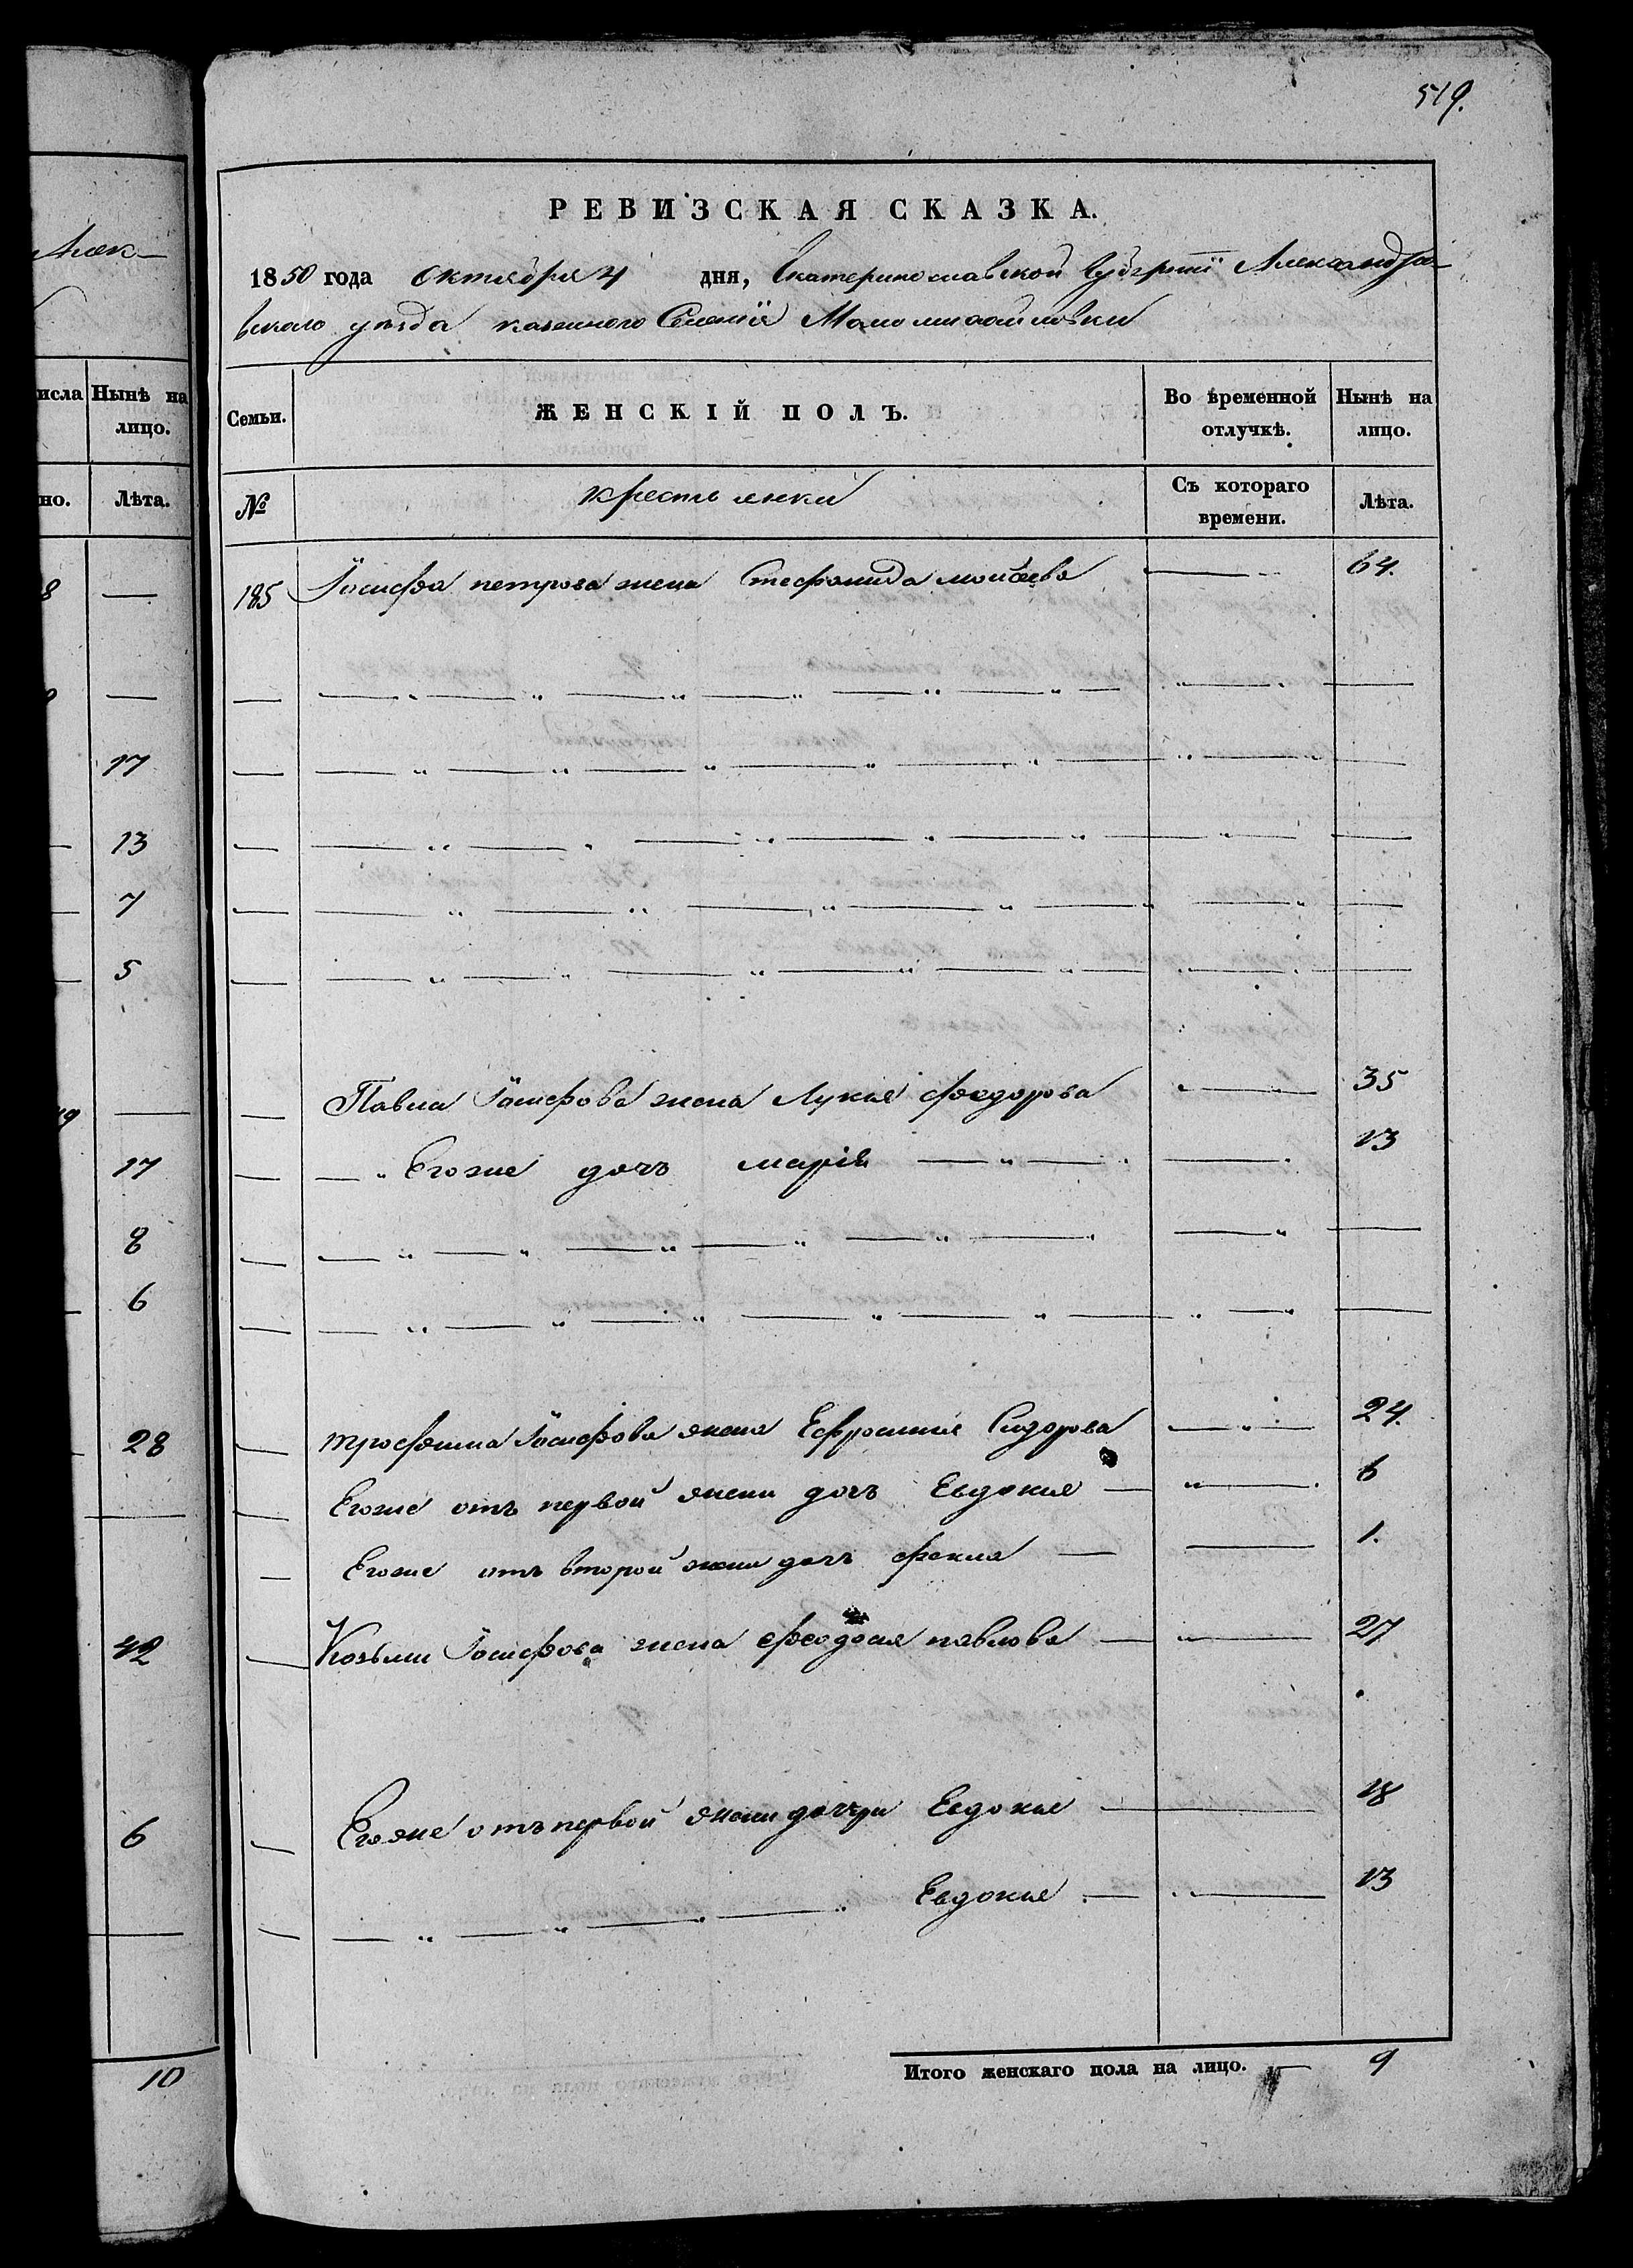 519.
РЕВИЗСКАЯ СКАЗКА.
1850 года Октября 4 дня, Екатеринославской Губернии Александро-
вскаго уѣзда казенного Селения Маломихайловки
Семьи. ЖЕНСКІЙ ПОЛЪ. Во временной отлучкѣ. Нынѣ на лицо.
№ крестьянки Съ котораго времени. Лѣта.
185 Іосифа петрова жена Стефанида моисеева 64.
Павла Іосифова жена Лукия феодорова 35
Егоже дочь марія 13
трофима Іосифова жена Ефросиния Сидорова 24.
Егоже отъ первой жени дочь Евдокия 6
Егоже отъ второй жени дочь фекла 1.
Козьми Іосифова жена феодосия павлова 27
Егоже отъ первой жени дочери Евдокия 18
Евдокия 13
Итого женскаго пола на лицо. 9
Алек-
исла Нынѣ на лицо.
но. Лѣта.
8
17
13
7
5
17
8
6
28
42
6
10